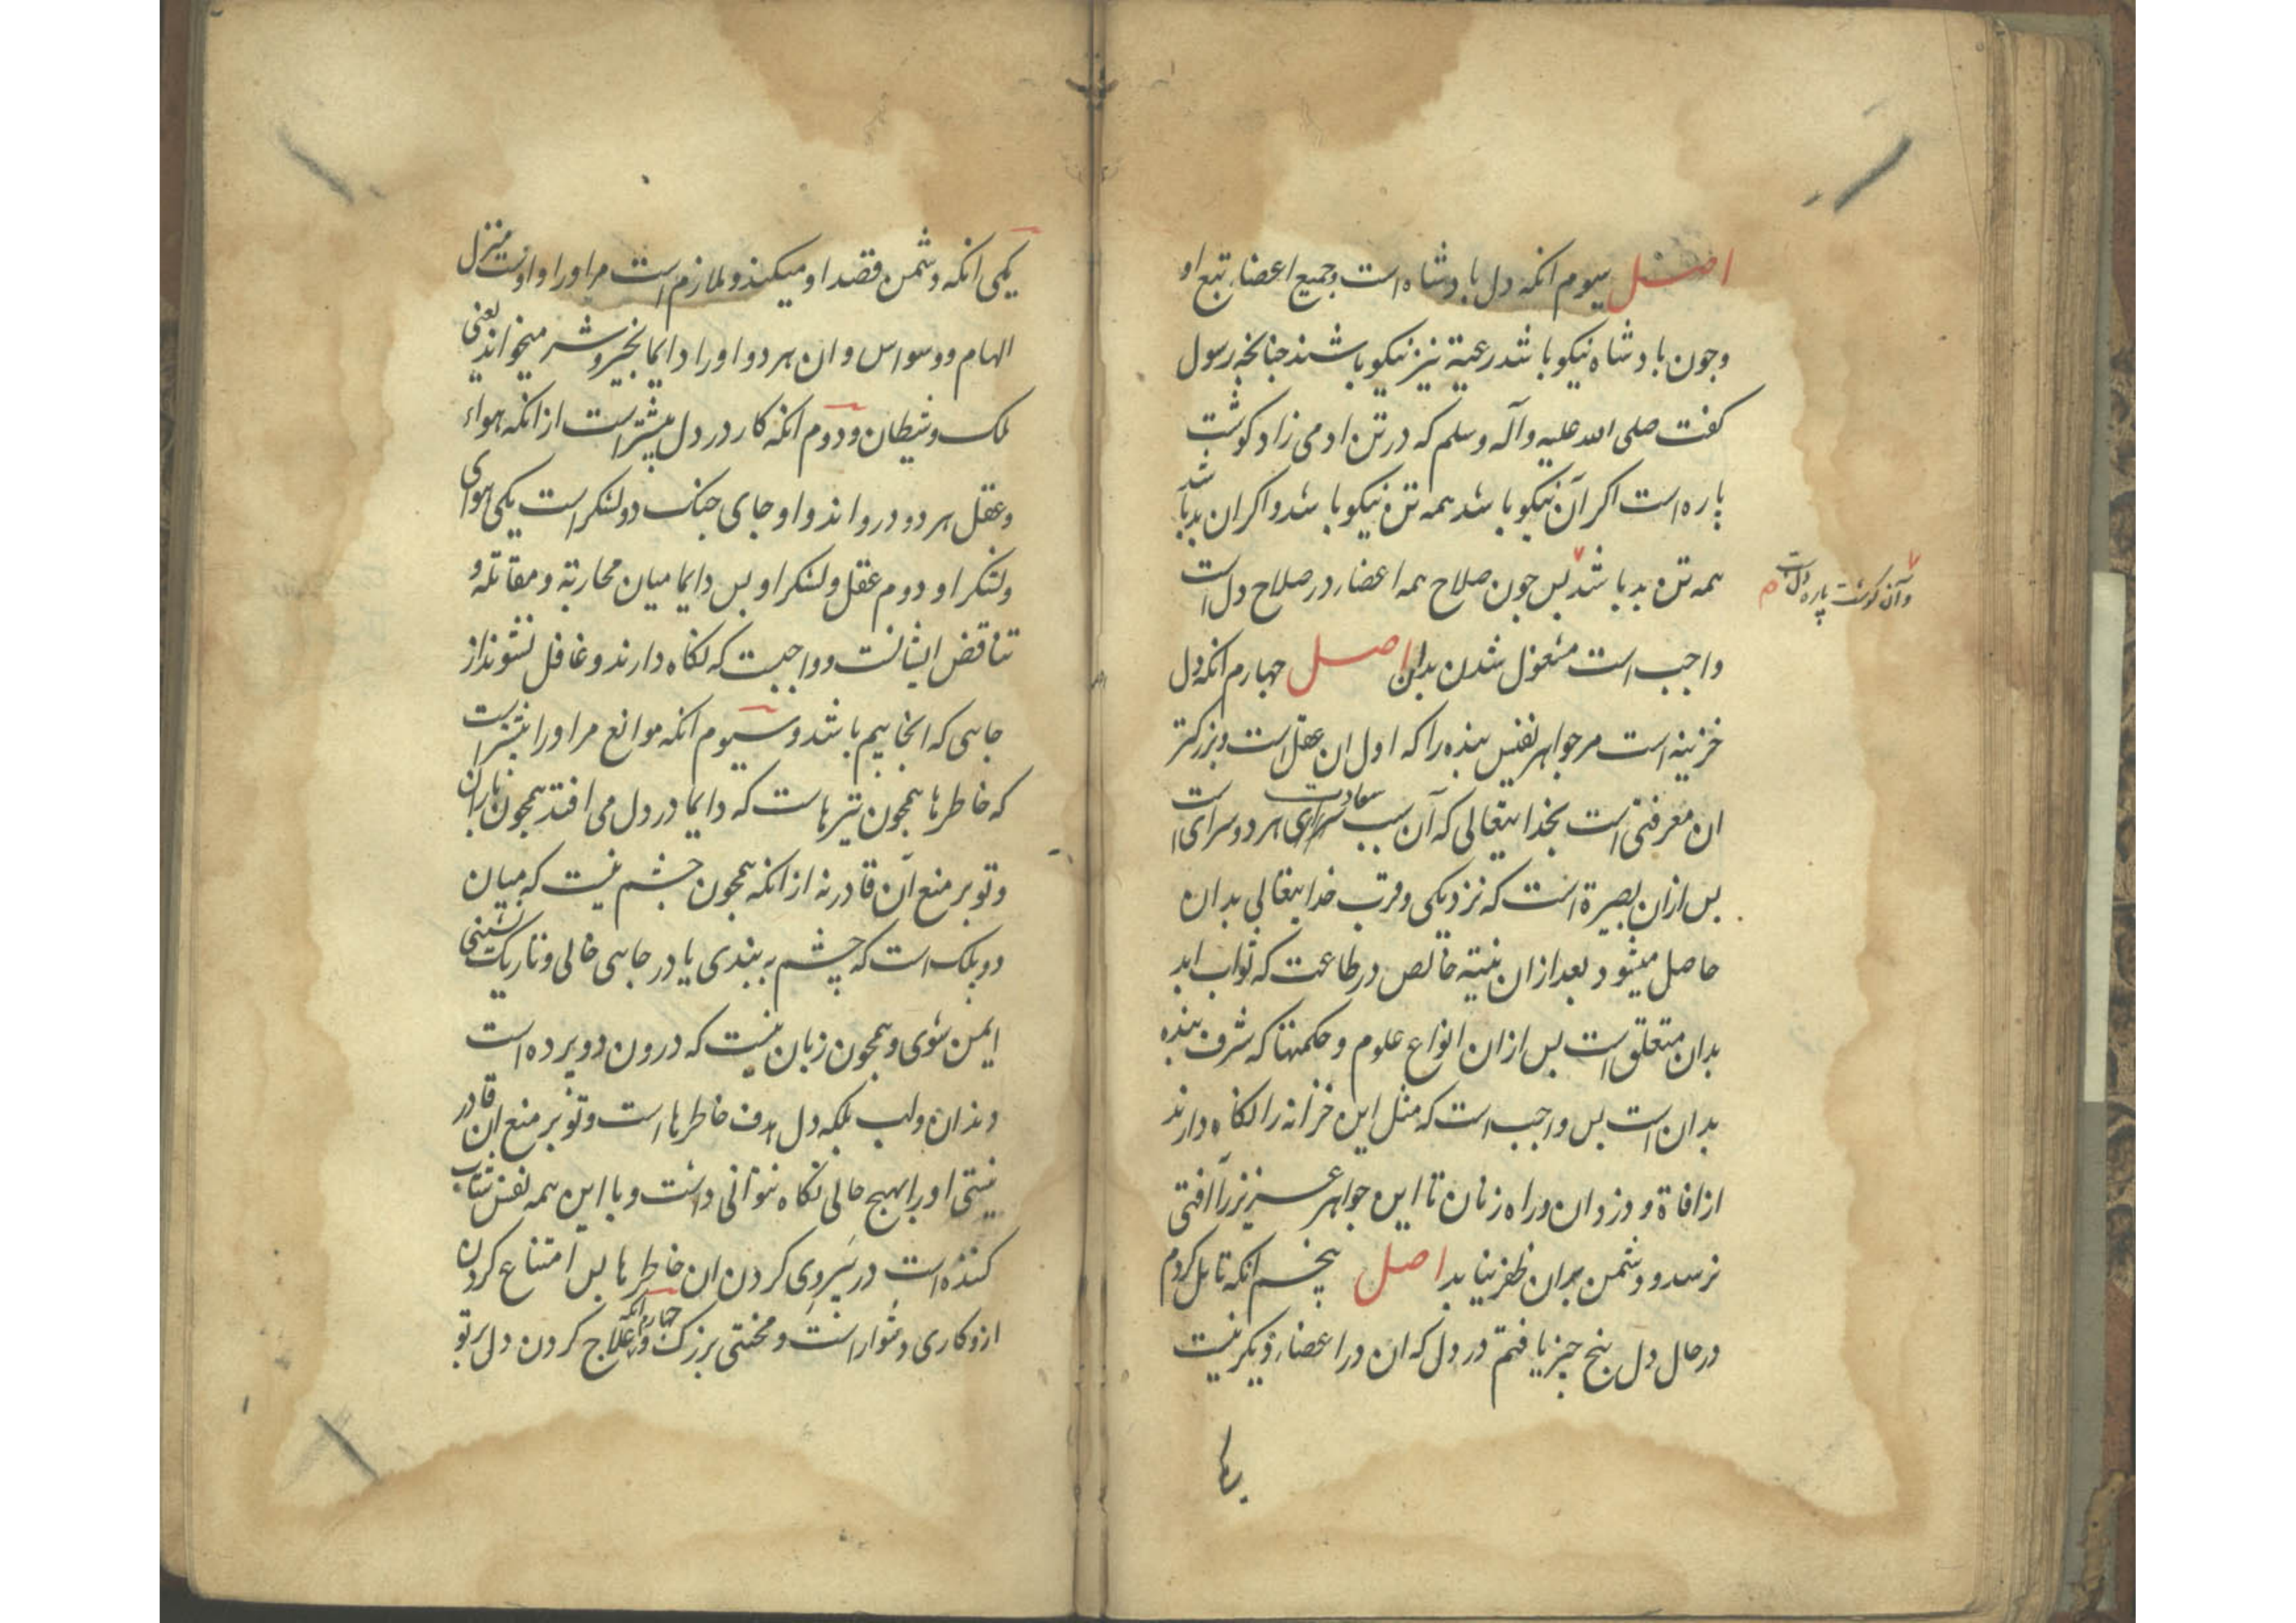 اصل سیوم انکه دل بادشاه است وجمیع اعضاء تبع او
وجون بادشاه نیکو باشد رعیة نیز نیکو باشند جنانجه رسول
کفت صلی الله علیه وآله وسلم که در تن ادمی زاد کوشت
پاره است اکر آن نیکو باشد همه تن نیکو باشد واکر ان بد باشد
همه تن بد باشد بس جون صلاح همه اعضاء در صلاح دل است
وآن کوشت پاره دل است م
واجب است مشغول شدن بدان اصل جهارم انکه دل
خزینه است مر جواهر نفیس بنده را که اول ان عقل است وبزرکتر
ان معرفتی است بخدایتعالی که آن سبب سعادت هر دو سرای است
بس ازان بصیرة است که نزدیکی وقرب خدایتعالی بدان
حاصل میشود بعد ازان نیته خالص در طاعت که ثواب ابد
بدان متعلق است بس ازان انواع علوم وحکمتها که شرف بنده
بدان است بس واجب است که مثل این خزانه را نکاه دارند
از افاة و دزدان وراه زنان تا این جواهر عزیز را آفتی
نرسد و دشمن بران ظفر نیابد اصل پنجم انکه تامل کردم
در حال دل پنج چیز یافتم در دل که ان در اعضاء دیکر نیست
یکی
یکی انکه دشمن قصد او میکند وملازم است مر اورا واوست منزل
الهام ووسواس وان هر دو اورا دایما بخیر وشر میخوانند یعنی
ملک وشیطان ودوم انکه کار در دل بیشتر است از انکه هواء
وعقل هر دو درواند واو جای جنک دو لشکر است یکی هوای
ولشکر او دوم عقل ولشکر او بس دایما میان محاربة ومقاتلة و
تناقض ایشانست وواجبست که نکاه دارند وغافل نشوند از
جایی که انجا بیم باشد وسیوم انکه موانع مر اورا بیشتر است
که خاطرها همجون تیرهاست که دایما در دل می افتد همجون باران
وتو بر منع آن قادر نه از انکه همجون چشم نیست که میان
دو بلک است که چشم به بندی یا در جایی خالی وتاریک نشینی
ایمن شوی وهمجون زبان نیست که درون دو برده است
دندان ولب بلکه دل هدف خاطرها است وتو بر منع ان قادر
نیستی اورا بهیج حالی نکاه نتوانی داشت وبا این همه نفس شتاب
کننده است در پیروی کردن ان خاطرها بس امتناع کردن
ازو کاری دشوار است ومحنتی بزرک وجهارم انکه علاج کردن دل بر تو